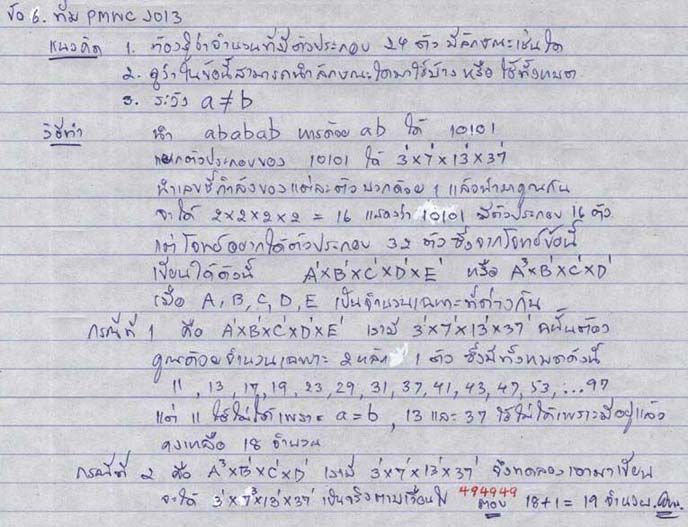 ข้อ 6. ทีม PMWC 2013
แนวคิด 1. ต้องรู้ว่าจำนวนที่มีตัวประกอบ 24 ตัว มีลักษณะเช่นใด
2. ดูว่าในข้อนี้สามารถนำลักษณะใดมาใช้บ้าง หรือ ใช้ทั้งหมด
3. ระวัง a ≠ b
วิธีทำ นำ ababab หารด้วย ab ได้ 10101
แยกตัวประกอบของ 10101 ได้ 3¹×7¹×13¹×37¹
นำเลขชี้กำลังของแต่ละตัว บวกด้วย 1 แล้วนำมาคูณกัน
จะได้ 2×2×2×2 = 16 แสดงว่า 10101 มีตัวประกอบ 16 ตัว
แต่โจทย์อยากได้ตัวประกอบ 32 ตัว ซึ่งจากโจทย์ข้อนี้
เขียนได้ดังนี้ A¹×B¹×C¹×D¹×E¹ หรือ A³×B¹×C¹×D¹
เมื่อ A, B, C, D, E เป็นจำนวนเฉพาะที่ต่างกัน
กรณีที่ 1 คือ A¹×B¹×C¹×D¹×E¹ เรามี 3¹×7¹×13¹×37¹ ฉะนั้นต้อง
คูณด้วยจำนวนเฉพาะ 2 หลัก 1 ตัว ซึ่งมีทั้งหมดดังนี้
11, 13, 17, 19, 23, 29, 31, 37, 41, 43, 47, 53, ...97
แต่ 11 ใช้ไม่ได้เพราะ a = b, 13 และ 37 ใช้ไม่ได้เพราะมีอยู่แล้ว
คงเหลือ 18 จำนวน
กรณีที่ 2 คือ A³×B¹×C¹×D¹ เรามี 3¹×7¹×13¹×37¹ จึงทดลองเอามาเขียน
จะได้ 3¹×7³×13¹×37¹ เป็นจริงตามเงื่อนไข 494949 ตอบ 18+1 = 19 จำนวน